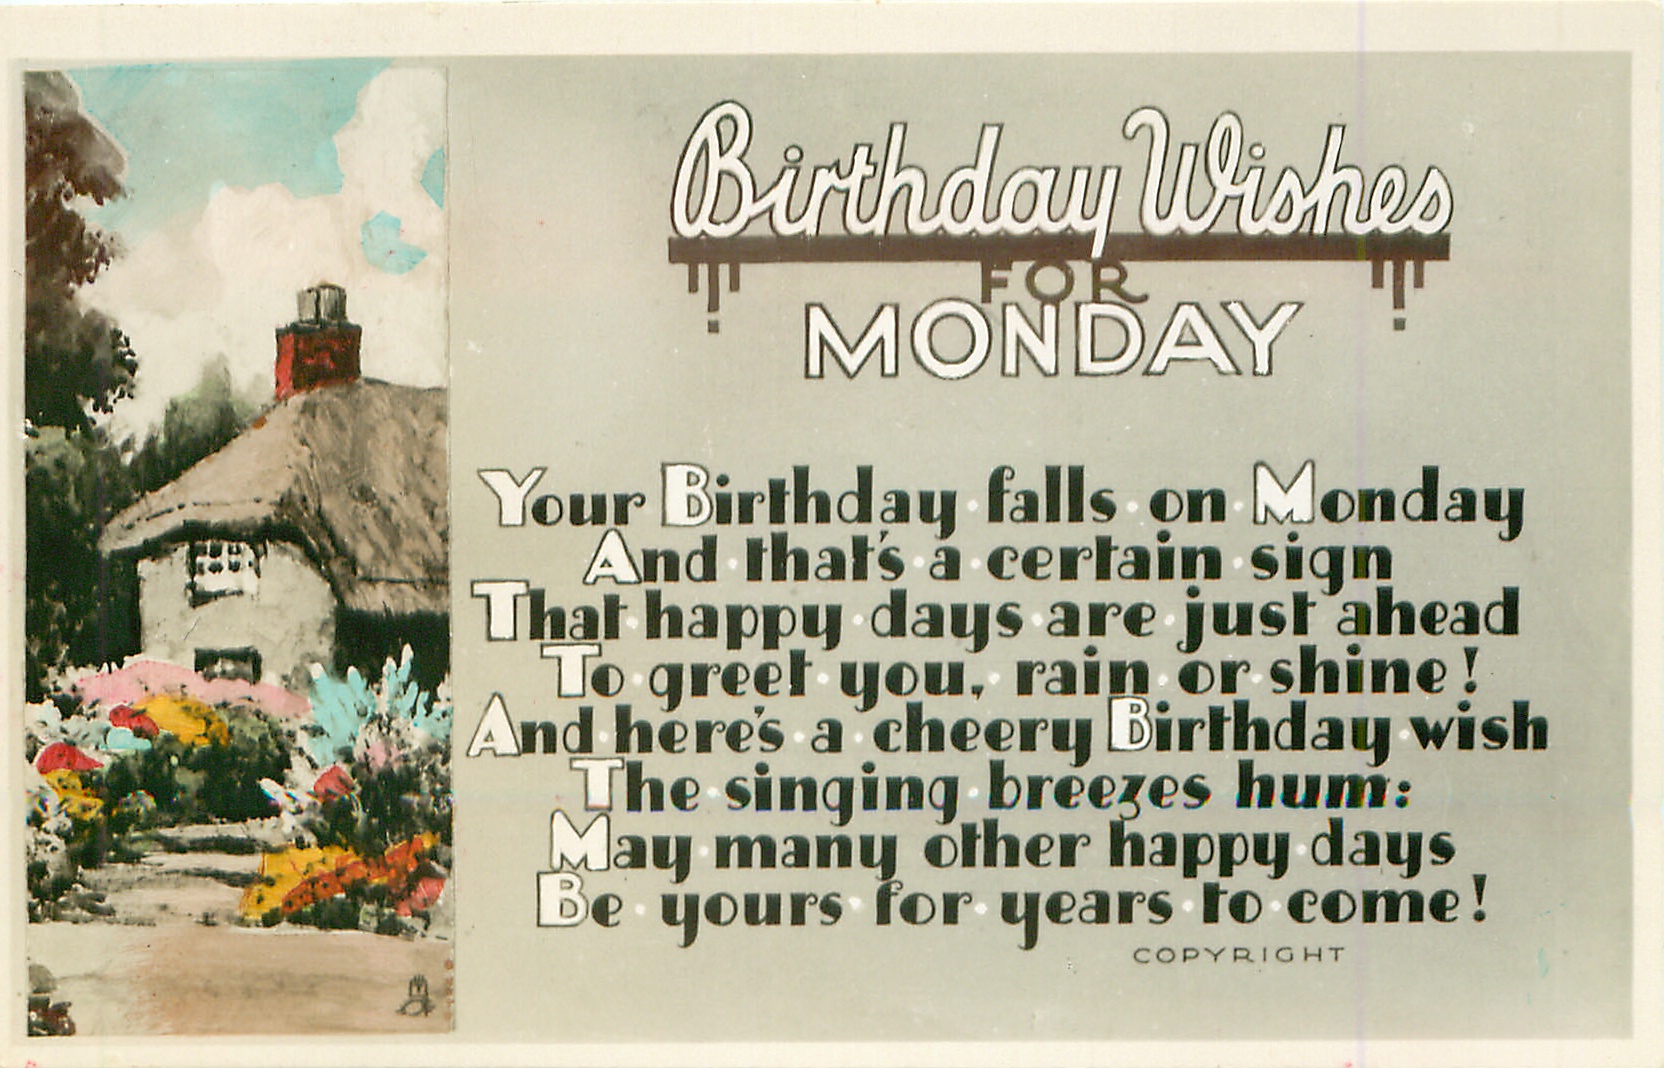 Birthday Wishes
FOR
MONDAY
Your Birthday falls on Monday
And that's a certain sign
That happy days are just ahead
To greet you, rain or shine!
And here's a cheery Birthday wish
The singing breezes hum:
May many other happy days
Be yours for years to come!
COPYRIGHT